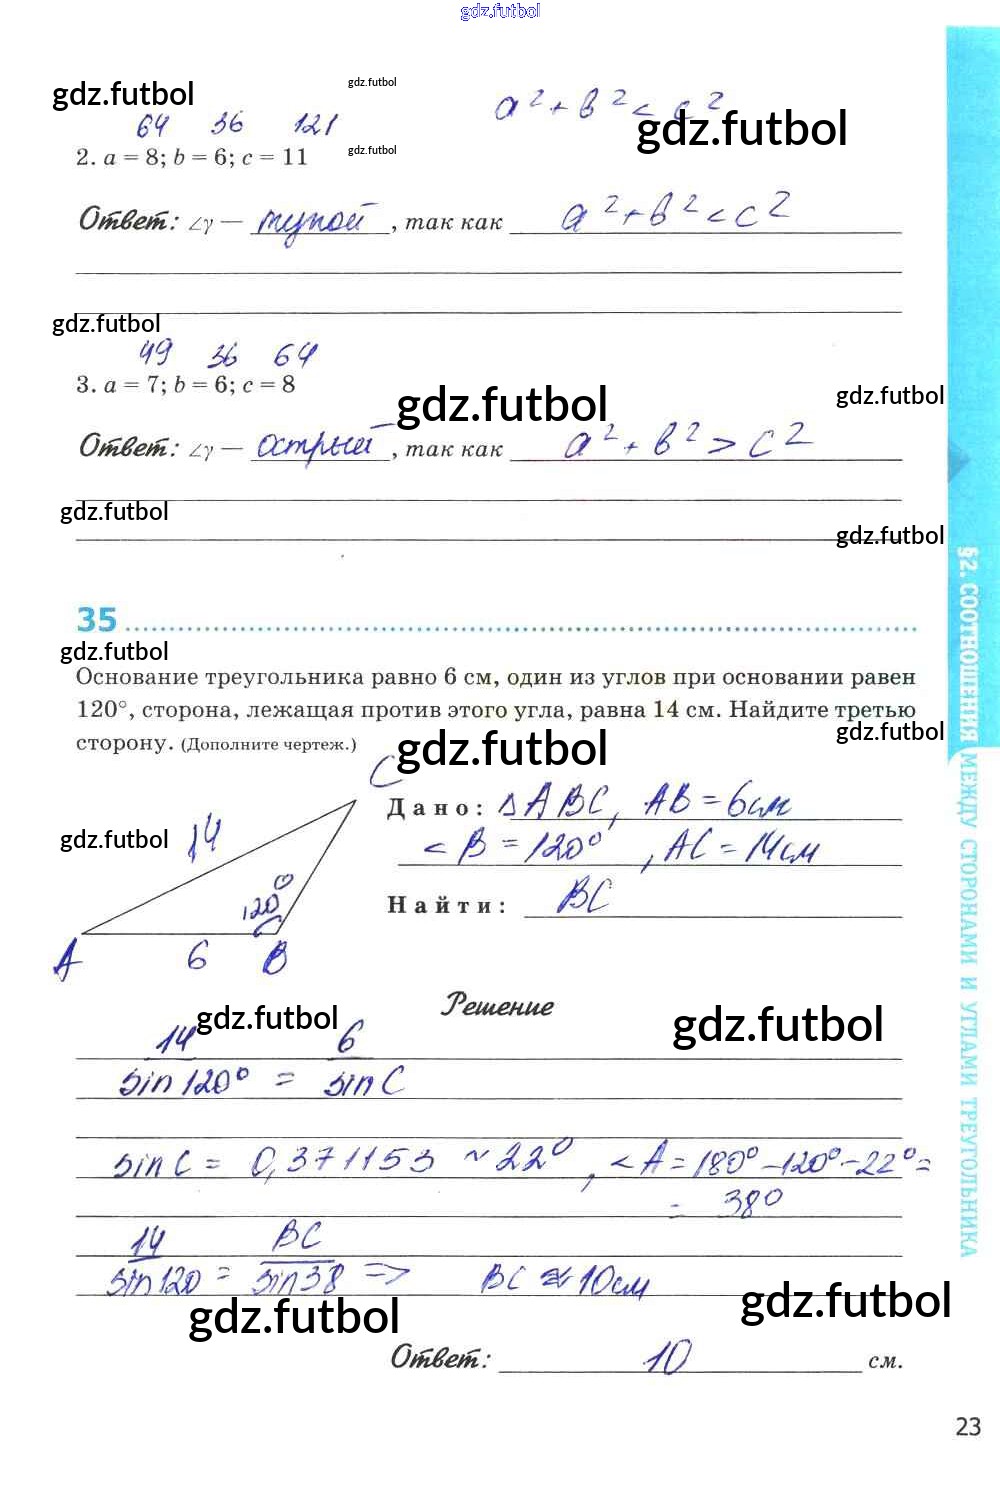 gdz.futbol
gdz.futbol
gdz.futbol
a² + b² < c²
gdz.futbol
64 36 121
2. a = 8; b = 6; c = 11
gdz.futbol
Ответ: ∠γ — тупой, так как a² + b² < c²
gdz.futbol
49 36 64
3. a = 7; b = 6; c = 8
gdz.futbol
gdz.futbol
Ответ: ∠γ — острый, так как a² + b² > c²
gdz.futbol
gdz.futbol
§2. СООТНОШЕНИЯ МЕЖДУ СТОРОНАМИ И УГЛАМИ ТРЕУГОЛЬНИКА
35
gdz.futbol
Основание треугольника равно 6 см, один из углов при основании равен
120°, сторона, лежащая против этого угла, равна 14 см. Найдите третью
сторону. (Дополните чертеж.)
gdz.futbol
gdz.futbol
C
Дано: Δ ABC, AB = 6см
14
gdz.futbol
< B = 120°, AC = 14см
120°
Найти: BC
A 6 B
Решение
gdz.futbol
gdz.futbol
14 6
sin 120° = sin C
sin C = 0,371153 ~ 22°, < A = 180° – 120° – 22° =
= 38°
14 BC
sin 120 = sin 38 => BC ≈ 10см
gdz.futbol
gdz.futbol
Ответ: 10 см.
23